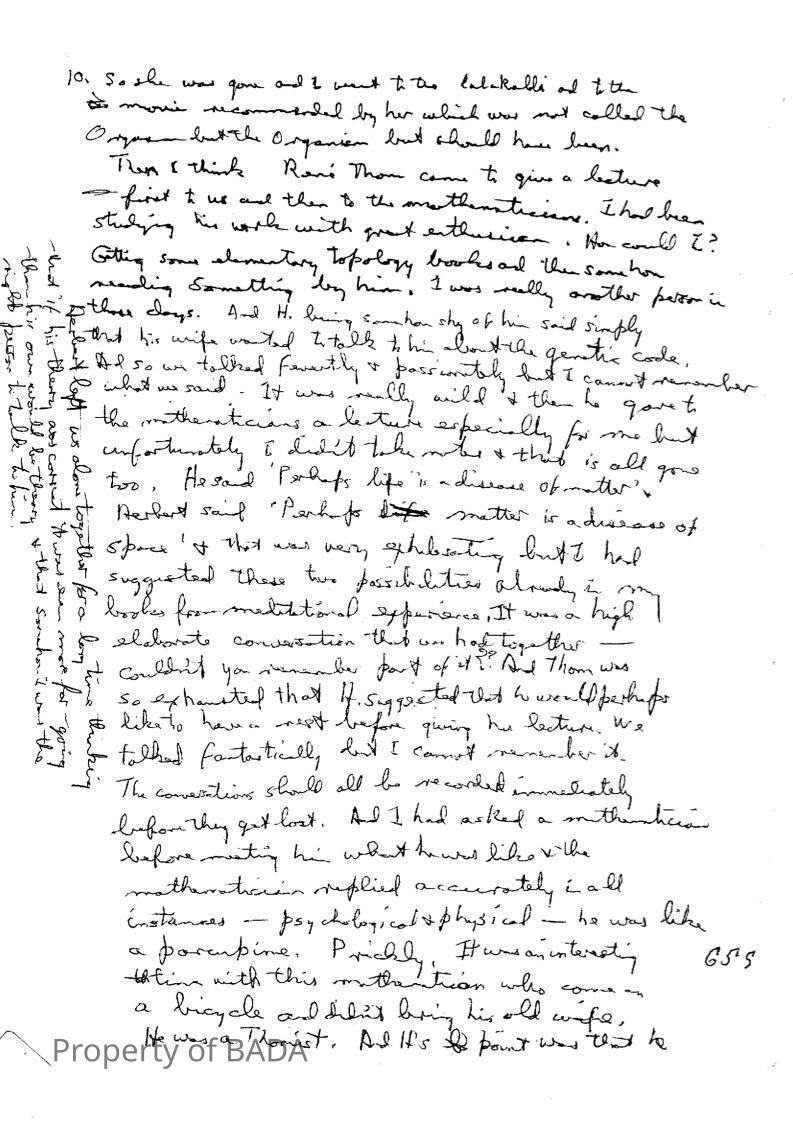 10. So she was gone and I went to the Lalakalli and to the
movie recommended by her which was not called the
Orgasm but the Organism but should have been.
Then I think René Thom came to give a lecture
first to us and then to the mathematicians. I had been
studying his work with great enthusiasm. How could I?
Getting some elementary topology books and then somehow
reading something by him. I was really another person in
those days. And H. being somehow shy of him said simply
that his wife wanted to talk to him about the genetic code.
And so we talked fevently & passionately but I cannot remember
what we said. It was really wild & then he gave to
the mathematicians a lecture especially for me but
unfortunately I didn't take notes & that is all gone
too. He said 'Perhaps life is a disease of matter' &
Herbert said 'Perhaps life matter is a disease of
space' & that was very exhilerating but I had
suggested these two possibilities already in my
books from meditational experience. It was a high
elaborate conversation that we had together —
couldn't you remember part of it? And Thom was
so exhausted that H. suggested that he would perhaps
like to have a rest before giving his lecture. We
talked fantastically but I cannot remember it.
The conversations should all be recorded immediately
before they get lost. And I had asked a mathematician
before meeting him what he was like & the
mathematician replied accurately in all
instances — psychological & physical — he was like
a porcupine. Prickly. It was an interesting
time with this mathematician who came on
a bicycle and didn't bring his old wife.
He was a Thomist. And H's point was that he
Herbert left us alone together for a long time thinking
that if his theory was correct it was even more far-going
than his own would be theory & that somehow I was the
right person to talk to him.
655
Property of BADA